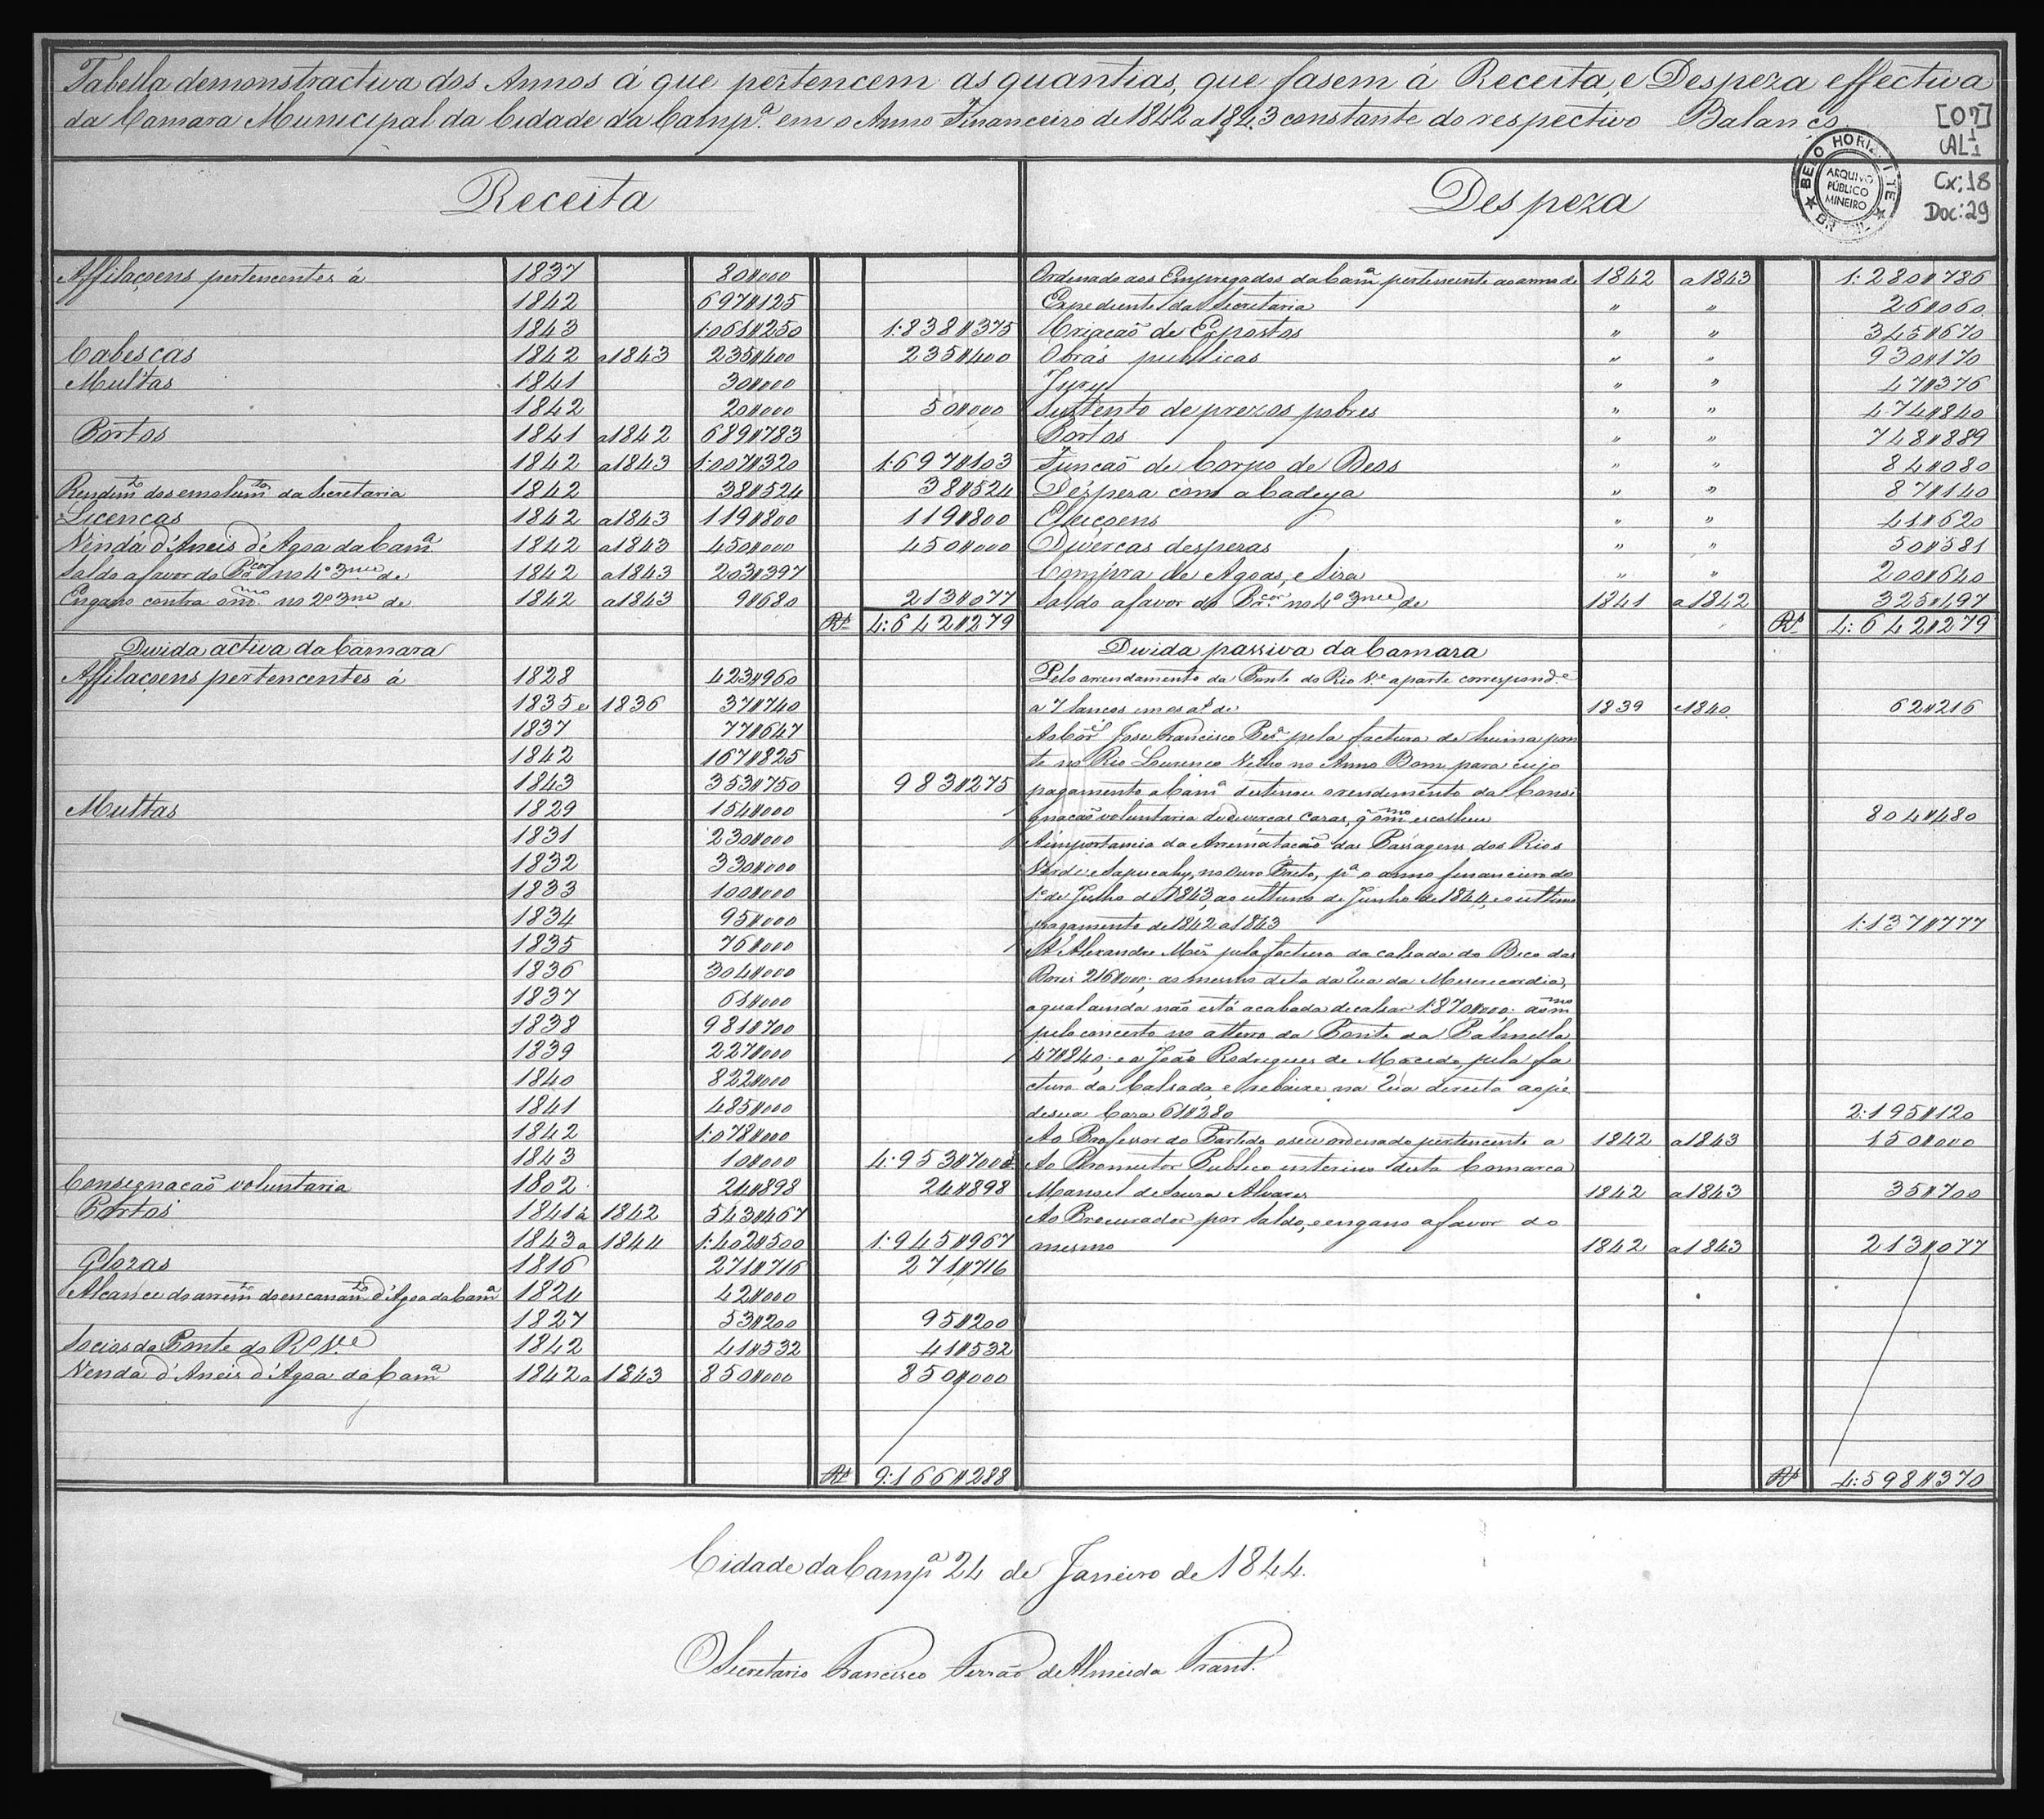 Tabella demonstractiva dos Annos á que pertencem as quantias, que fasem á Receita, e Despeza effectiva
da Camara Municipal da Cidade da Campª. em o Anno Financeiro de 1842 a 1843 constante do respectivo Balanço
[07]
AL-1
Cx: 18
Doc: 29
BELO HORIZONTE
ARQUIVO
PÚBLICO
MINEIRO
BRASIL
Receita
Affilaçoens pertencentes á 1837 80$000
1842 697$125
1843 1:061$250 1:838$375
Cabescas 1842 a 1843 235$400 235$400
Multas 1841 30$000
1842 20$000 50$000
Portos 1841 a 1842 689$783
1842 a 1843 1:007$320 1:697$103
Rendimto dos emolumtos da Secretaria 1842 38$524 38$524
Licencas 1842 a 1843 119$800 119$800
Vendá d'Aneis d'Agoa da Camª 1842 a 1843 450$000 450$000
Saldo a favor do Pacor no 4º 3me de 1842 a 1843 203$397
Engano contra o mmo no 2º 3me de 1842 a 1843 9$680 213$077
Rs 4:642$279
Divida activa da Camara
Affilaçoens pertencentes á 1828 423$960
1835 e 1836 37$740
1837 77$647
1842 167$825
1843 353$750 983$275
Multas 1829 154$000
1831 230$000
1832 330$000
1833 100$000
1834 95$000
1835 76$000
1836 304$000
1837 61$000
1838 981$700
1839 227$000
1840 822$000
1841 485$000
1842 1:078$000
1843 10$000 4:953$700
Consignacaõ voluntaria 1802 24$898 24$898
Portos 1841 á 1842 543$467
1843 a 1844 1:402$500 1:945$967
Glozas 1816 271$716 271$716
Alcance do arremto do encanamto d'Agoa da Camª 1824 42$000
1827 53$200 95$200
Socios da Ponte do Rº Ve 1842 41$532 41$532
Venda d'Aneis d'Agoa da Camª 1842 a 1843 850$000 850$000
Rs 9:166$288
Despeza
Ordenado aos Empregados da Camª pertencente ao anno de 1842 a 1843 1:280$786
Expediente da Secretaria " " 26$060
Criacaõ de Expostos " " 345$670
Obras publicas " " 930$170
Jury " " 47$376
Sustento de prezos pobres " " 474$840
Portos " " 748$889
Funcaõ de Corpo de Deos " " 84$080
Déspeza com a Cadeya " " 87$140
Elleiçoens " " 41$620
Divercas despezas " " 50$581
Compra de Agoas, e Siza " " 200$640
Saldo a favor do Pacor no 4º 3me de 1841 a 1842 325$497
Rs 4:642$279
Divida passiva da Camara
Pelo arrendamento da Ponte do Rio Ve a parte corresponde
a 7 lanços 1839 e 1840 62$216
Jose Francisco Perª pela factura de huma pon
te no Rio Lourenco Velho no Anno Bom para cujo
pagamento a Camª destinou o rendimento da Consi
gnacaõ voluntaria de divercas cazas, q o mmo escolheu 804$480
A importancia da Arrematacaõ das Passagens dos Rios
Verde e Sapucahy, no Ouro Preto, pª o anno financeiro do
1º de Julho de 1843, ao ultimo de Junho de 1844, e o ultimo
pagamento de 1842 a 1843 1:137$777
A Alexandre pela factura da calsada do Beco das
216$000; ao mesmo dita da Rua da Misericordia,
a qual ainda não está acabada de calsar 1:870$000; ao mmo
pelo concerto no atterro da Ponte da Palmella
47$840; e a João Rodrigues de Macedo pela fa
ctura da Calsada, e rebaixe na Rua direita ao pé
de sua Caza 61$280 2:195$120
Ao Professor do Partido o seu ordenado pertencente a 1842 a 1843 150$000
Ao Promutor Publico interino desta Comarca
Manoel de Souza Alvares 1842 a 1843 35$700
Ao Procurador por Saldo, e engano a favor do
mesmo 1842 a 1843 213$077
Rs 4:598$370
Cidade da Campª 24 de Janeiro de 1844.
O Secretario Francisco Ferrão de Almeida Trant.